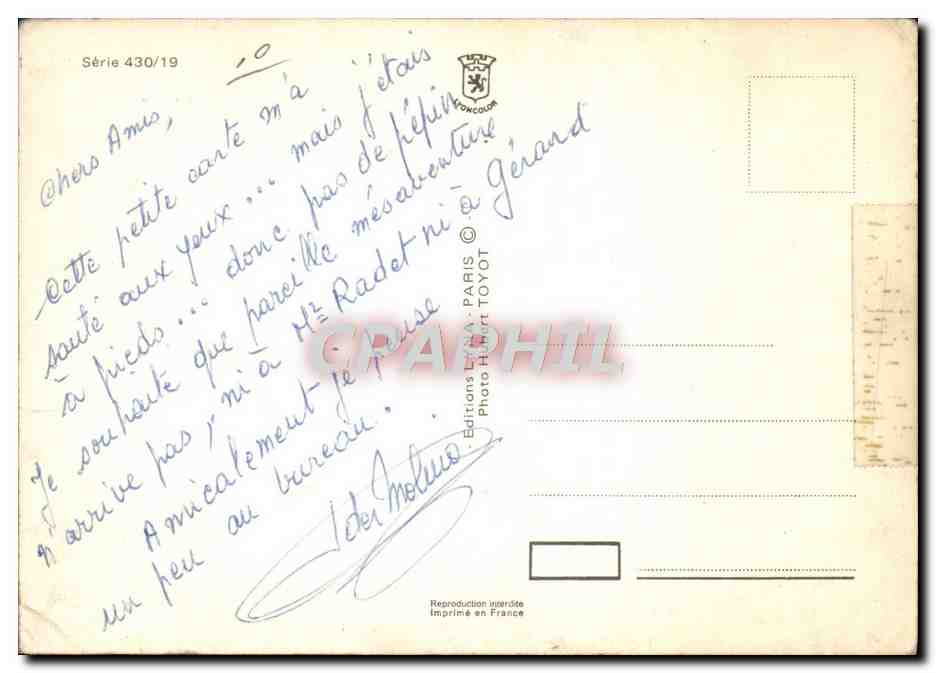 Série 430/19
LYONCOLOR
Chers Amis,
Cette petite carte m'a
sauté aux yeux... mais j'étais
à pieds... donc pas de pépin
Je souhaite que pareille mésaventure
n'arrive pas, ni à Mr Radet ni à Gérard
Amicalement je pense
un peu au bureau.
Editions LYNA - PARIS ©
Photo Hubert TOYOT
CPAPHIL
Reproduction interdite
Imprimé en France